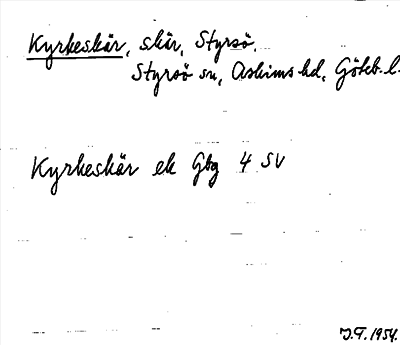 Kyrkeskär, skär, Styrsö.
Styrsö sn, Askims hd, Göteb. l.
Kyrkeskär ek Gbg 4 SV
J.T. 1954.